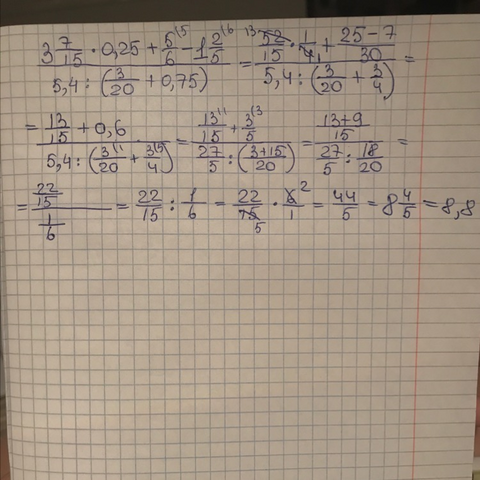 (3 7/15 · 0,25 + 5/6^(5 - 1 2/5^(6) / (5,4 : (3/20 + 0,75)) = (52^13/15 · 1/4_1 + (25-7)/30) / (5,4 : (3/20 + 3/4)) =
= (13/15 + 0,6) / (5,4 : (3^(1/20 + 3^(5/4)) = (13^(1/15 + 3^(3/5) / (27/5 : ((3+15)/20)) = ((13+9)/15) / (27/5 : 18/20) =
= (22/15) / (1/6) = 22/15 : 1/6 = 22/15_5 · 6^2/1 = 44/5 = 8 4/5 = 8,8